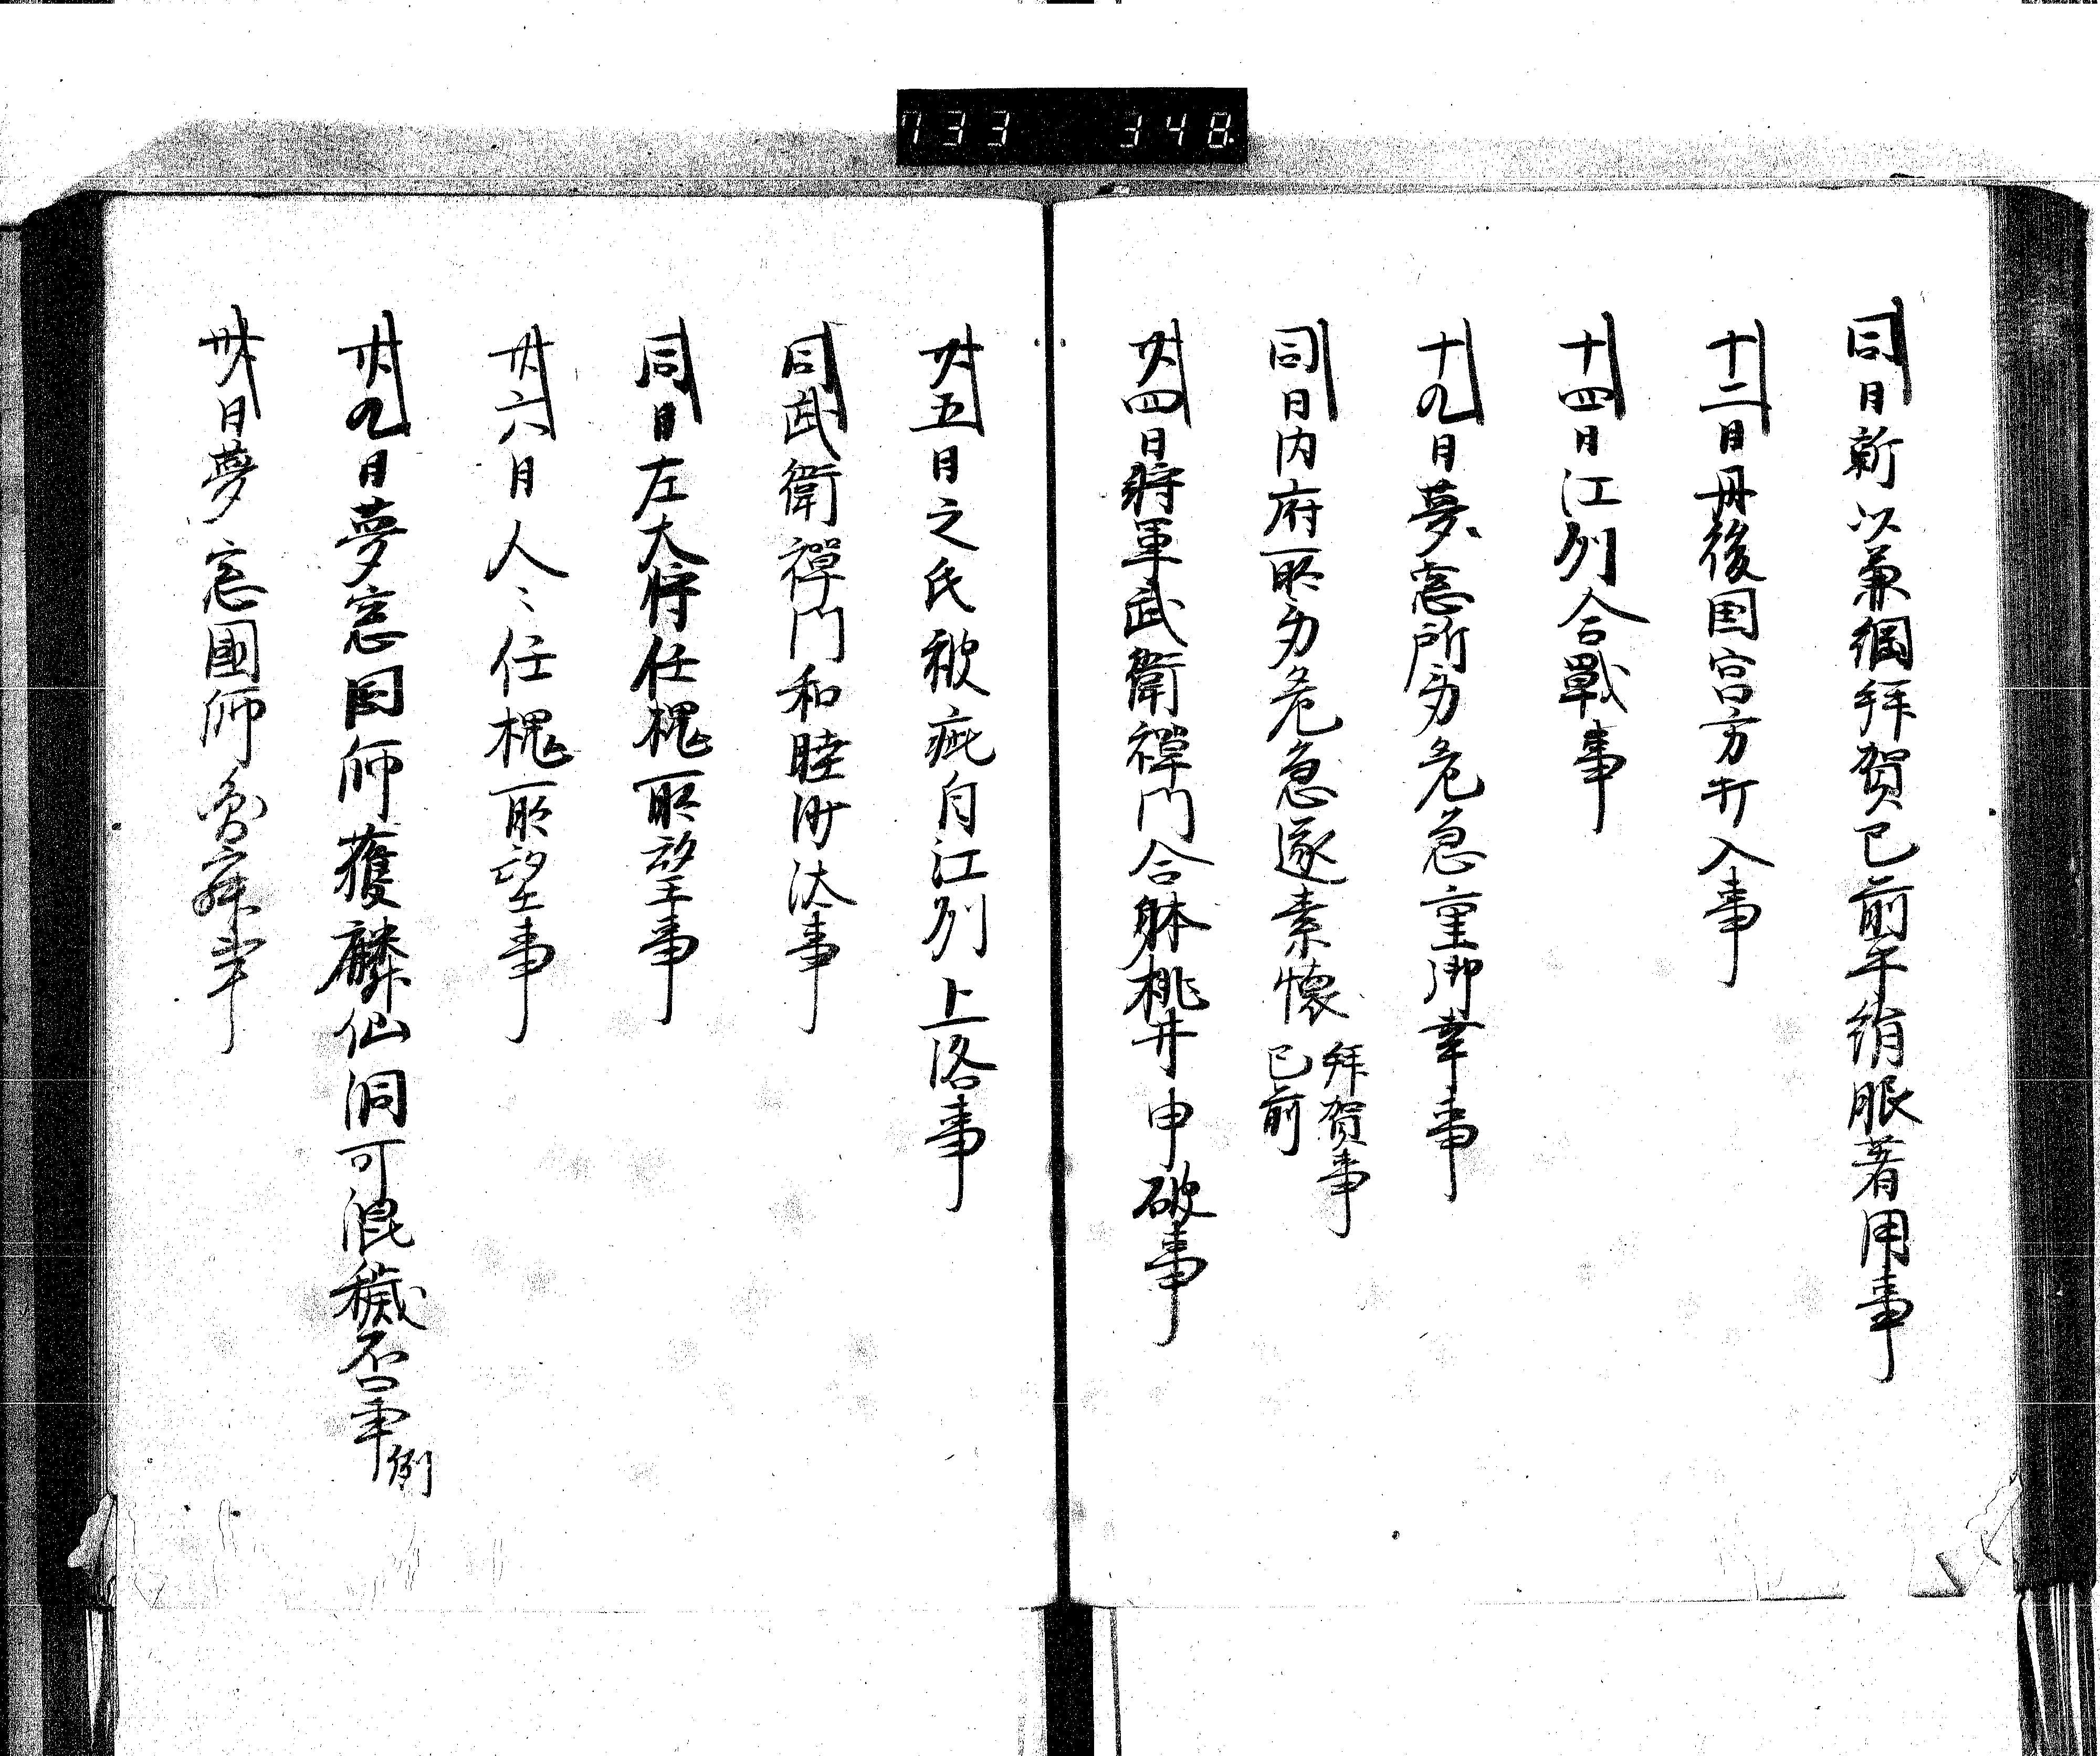 733 348
同日新以兼綱拝賀已前平絹服著用事
十二日丹後国宮方打入事
十四日江列合戰事
十九日夢窓所労危急重御幸事
同日内府所労危急遂素懐拝賀事已前
廿四日将軍武衛禅門合躰桃井申破事
廿五日之氏被疵自江列上洛事
同武衛禅門和睦沙汰事
同日左大将任槐所望事
廿六日人〻任槐所望事
廿九日夢窓国師獲麟仙洞可混穢否事例
卅日夢窓國師 事